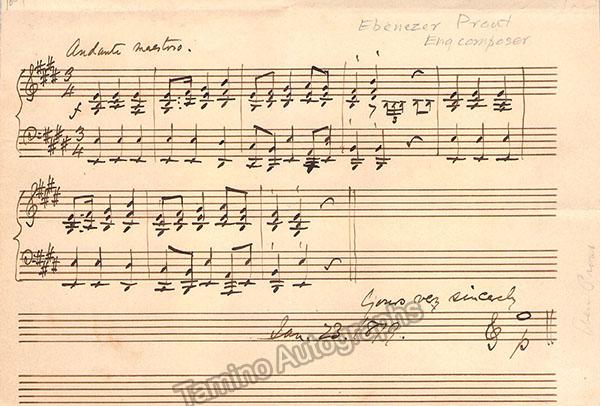 Ebenezer Prout
Eng composer
Andante maestoso.
3
4
f
3
3
4
Yours very sincerely
Jan. 23.
p
Tamino Autographs